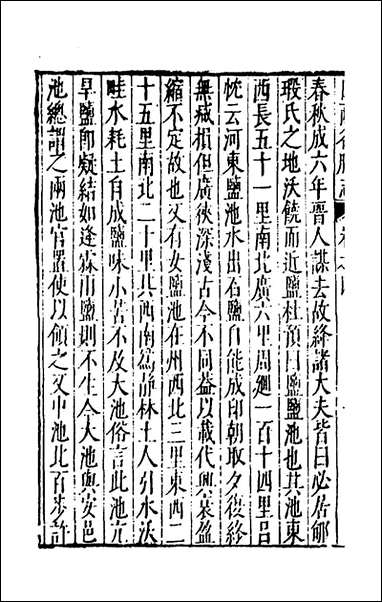 春秋成六年晉人謀去故絳諸大夫皆曰必居郇
瑕氏之地沃饒而近鹽杜預曰鹽鹽池也其池東
西長五十一里南北廣六里周廻一百十四里呂
忱云河東鹽池水出石鹽自能成印朝取夕復終
無減損但廣狹深淺古今不同蓋以載代興衰盈
縮不定故也又有女鹽池在州西北三里東西二
十五里南北二十里其西南為靜林土人引水沃
畦水耗土自成鹽味小苦不及大池俗言此池亢
旱鹽即凝結如逢霖雨鹽則不生今大池與安邑
池總謂之兩池官置使以領之又中池北百步許